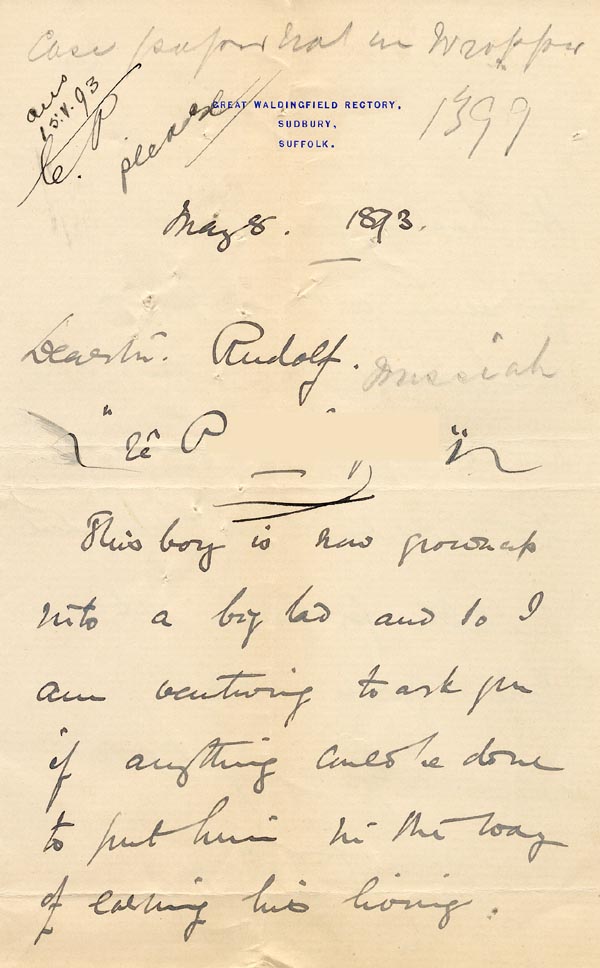 Case papers &c. in Wrapper
1399
ans
15.V.93
please
GREAT WALDINGFIELD RECTORY,
SUDBURY,
SUFFOLK.
May 8. 1893.
Dear Mr. Rudolf.
"re P "
This boy is now grown up
into a big lad and so I
am venturing to ask you
if anything could be done
to put him in the way
of earning his living.